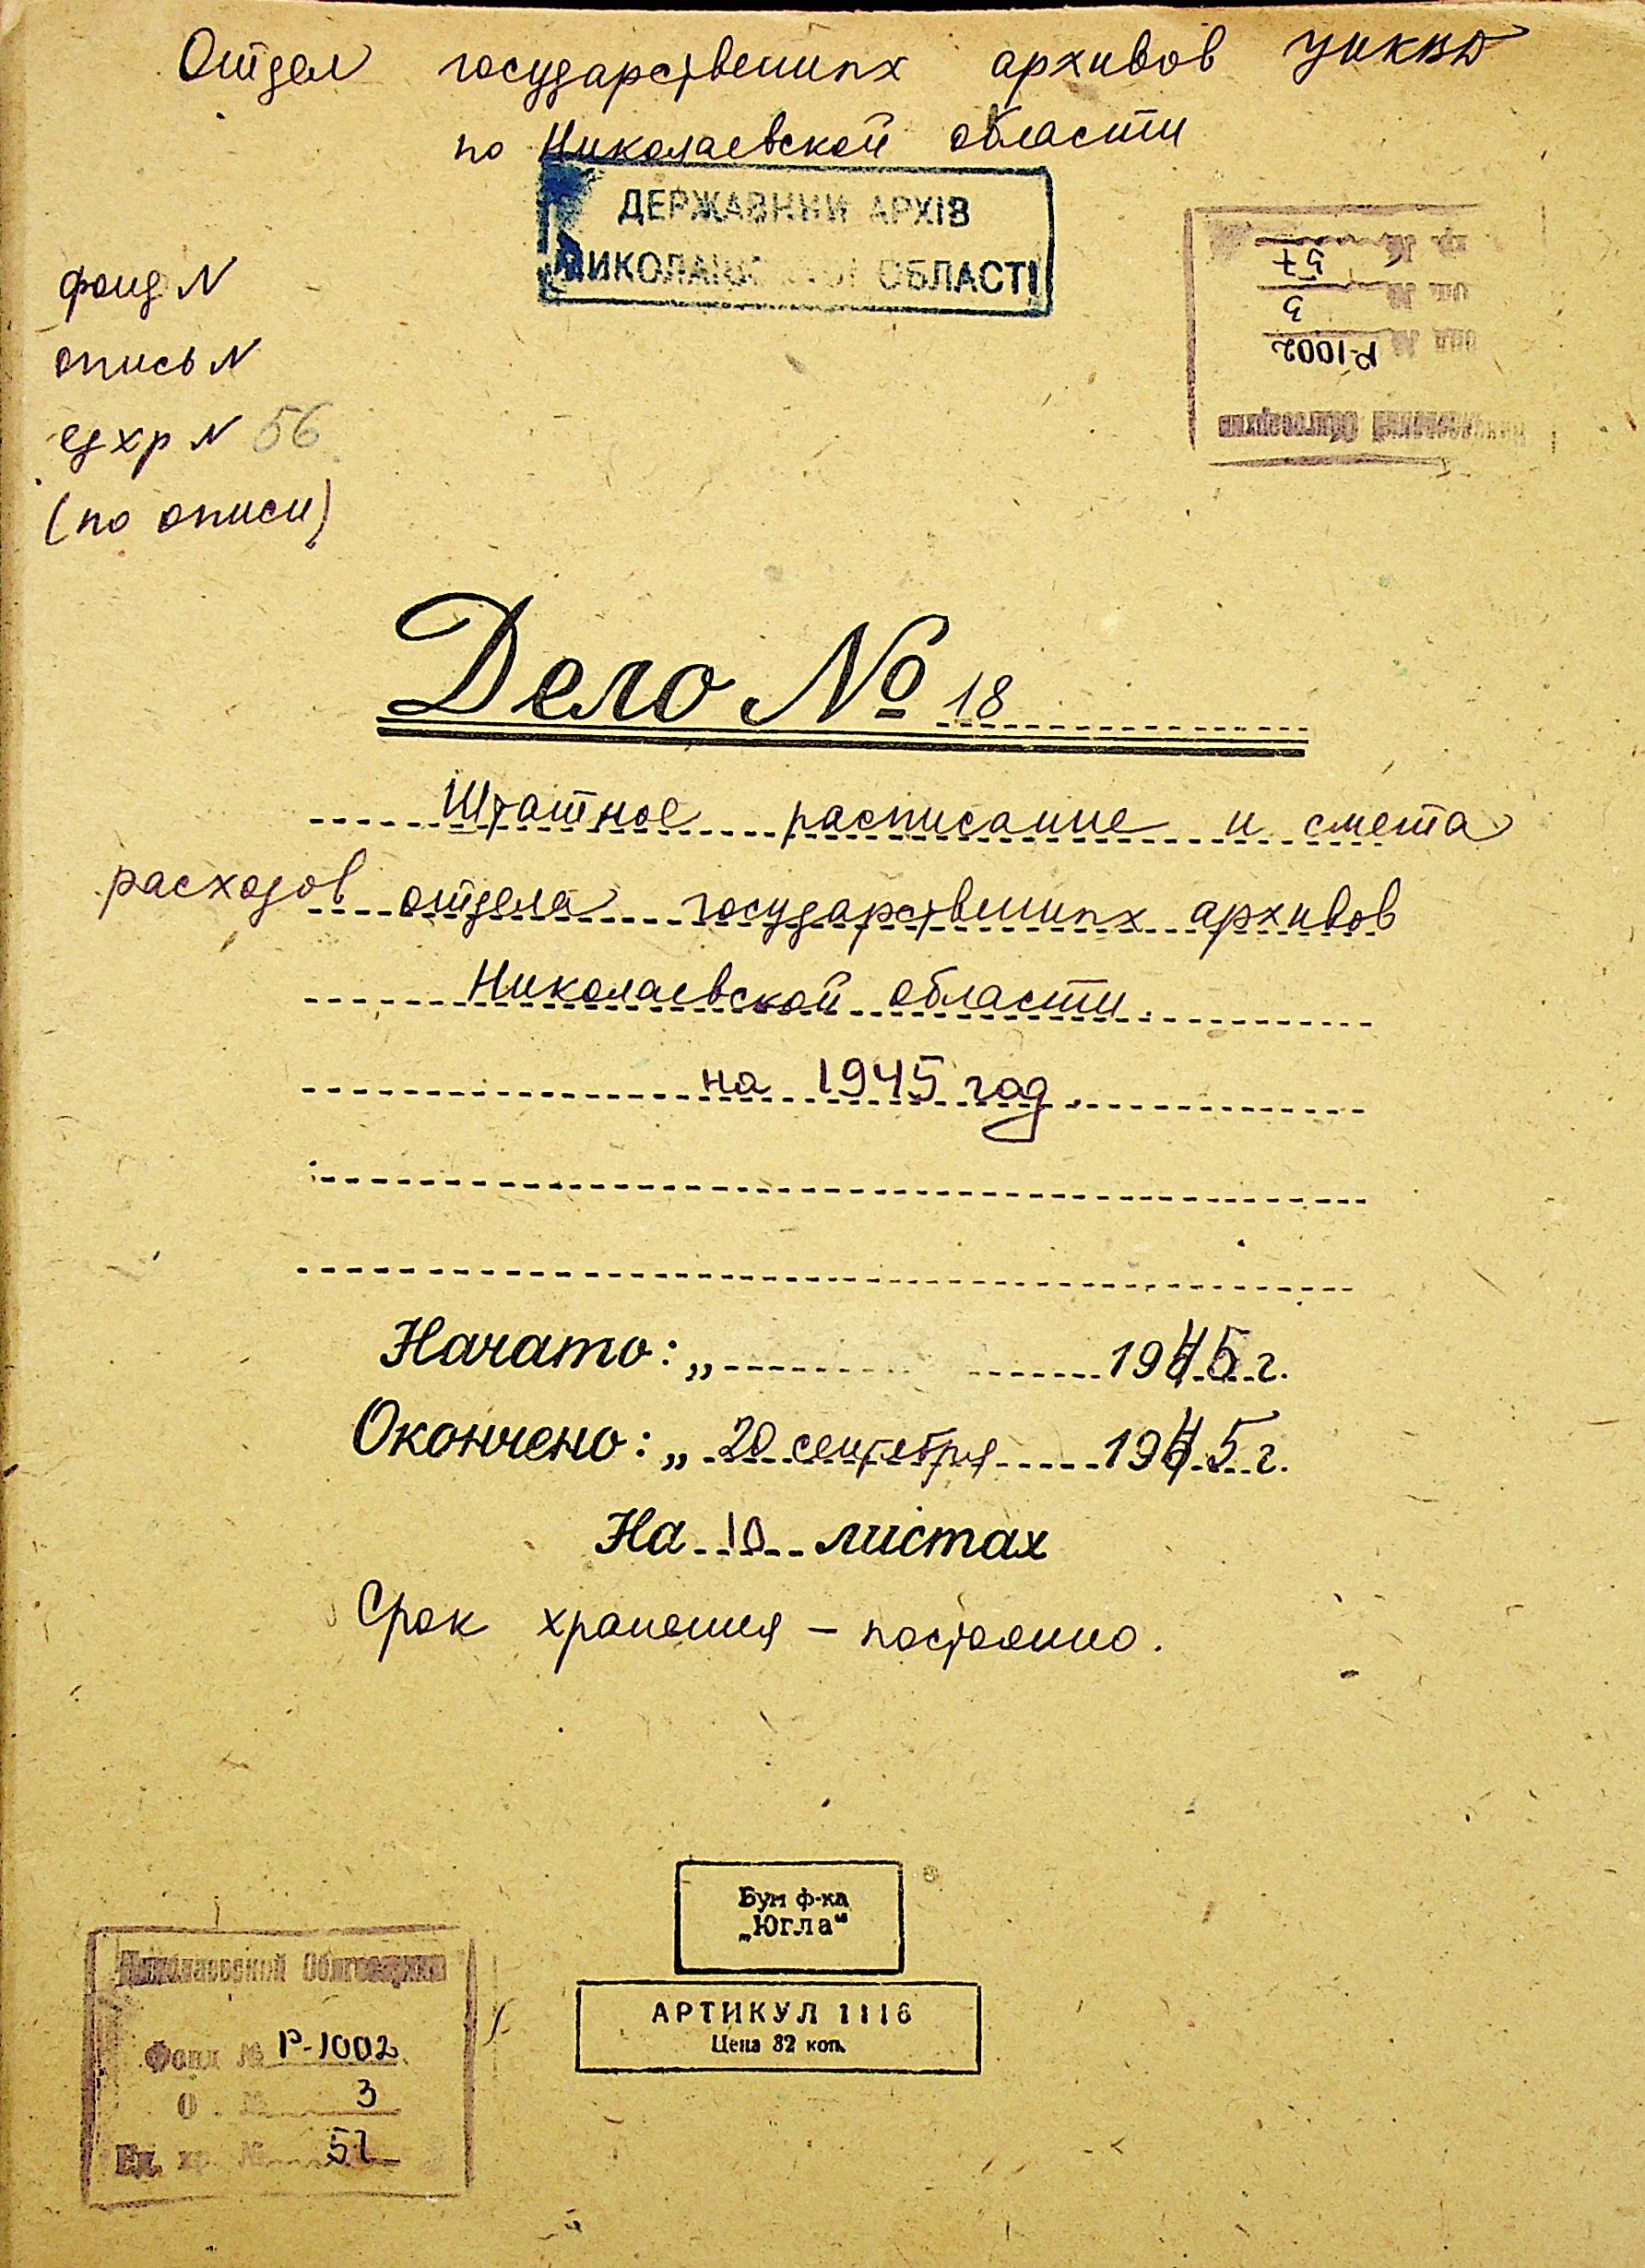 Отдел государственных архивов УНКВД
по Николаевской области
ДЕРЖАВНИЙ АРХІВ
МИКОЛАЇВСЬКОЇ ОБЛАСТІ
хр. № 57
оп. № 3
№ Р-1002
Николаевский Облгосархив
фонд N
опись N
ед хр N 56
(по описи)
Дело № 18
Штатное расписание и смета
расходов отдела государственных архивов
Николаевской области.
на 1945 год.
Начато: „ 1945 г.
Окончено: „ 20 сентября 1945 г.
На 10 листах
Срок хранения – постоянно.
Бум ф-ка
„Югла“
АРТИКУЛ 1116
Цена 32 коп.
Николаевский Облгосархив
Фонд № Р-1002
О . № 3
Ед. хр. № 57